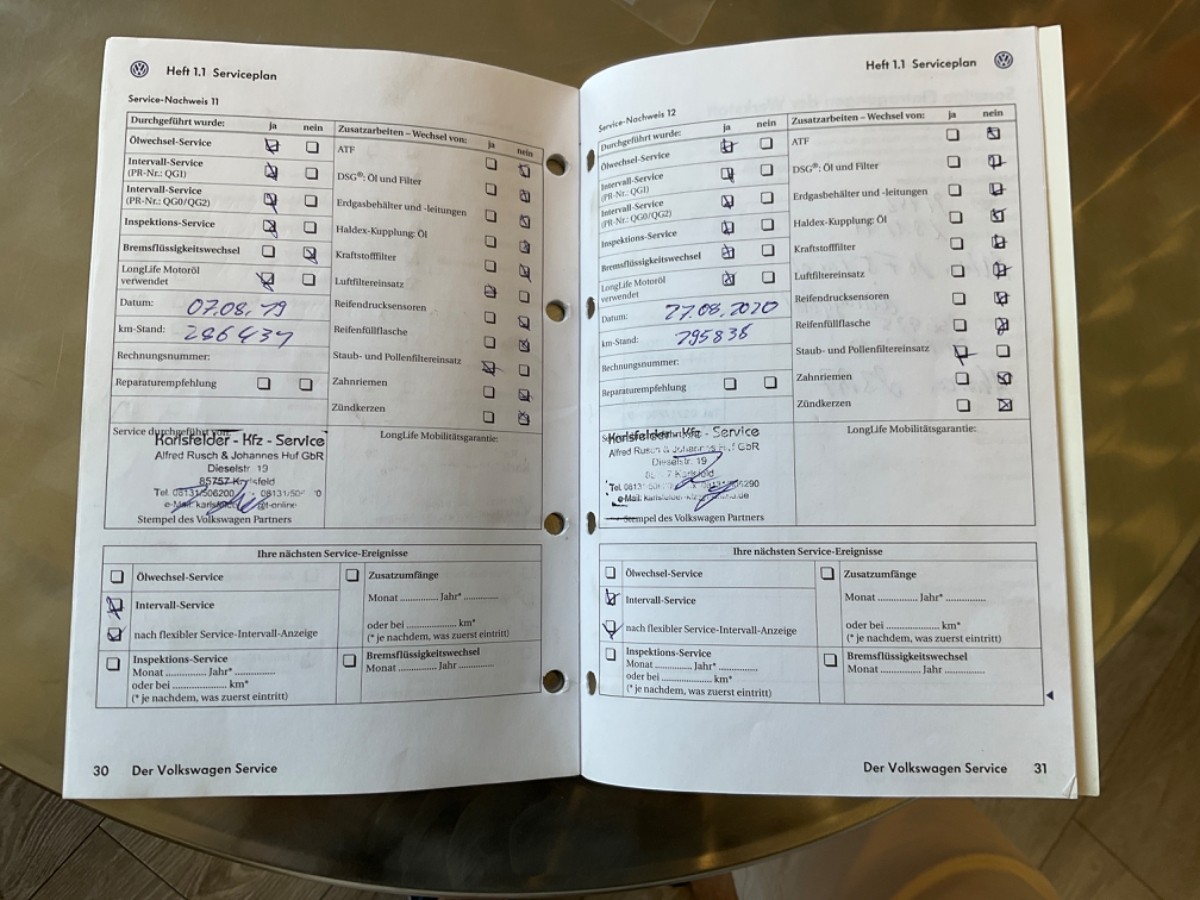 Heft 1.1 Serviceplan
Service-Nachweis 11
Durchgeführt wurde: ja nein
Ölwechsel-Service
Intervall-Service
(PR-Nr.: QG1)
Intervall-Service
(PR-Nr.: QG0/QG2)
Inspektions-Service
Bremsflüssigkeitswechsel
LongLife Motoröl
verwendet
Datum: 07.08.19
km-Stand: 286437
Rechnungsnummer:
Reparaturempfehlung
Zusatzarbeiten – Wechsel von: ja nein
ATF
DSG®: Öl und Filter
Erdgasbehälter und -leitungen
Haldex-Kupplung: Öl
Kraftstofffilter
Luftfiltereinsatz
Reifendrucksensoren
Reifenfüllflasche
Staub- und Pollenfiltereinsatz
Zahnriemen
Zündkerzen
Service durchgeführt von:
Karlsfelder - Kfz - Service
Alfred Rusch & Johannes Huf GbR
Dieselstr. 19
85757 Karlsfeld
Tel. 08131/506200
Stempel des Volkswagen Partners
LongLife Mobilitätsgarantie:
Ihre nächsten Service-Ereignisse
Ölwechsel-Service
Intervall-Service
nach flexibler Service-Intervall-Anzeige
Inspektions-Service
Monat .............. Jahr* ..............
oder bei ................... km*
(* je nachdem, was zuerst eintritt)
Zusatzumfänge
Monat ............. Jahr* .............
oder bei .................. km*
(* je nachdem, was zuerst eintritt)
Bremsflüssigkeitswechsel
Monat ............. Jahr .............
30 Der Volkswagen Service
Heft 1.1 Serviceplan
Service-Nachweis 12
Durchgeführt wurde: ja nein
Ölwechsel-Service
Intervall-Service
(PR-Nr.: QG1)
Intervall-Service
(PR-Nr.: QG0/QG2)
Inspektions-Service
Bremsflüssigkeitswechsel
LongLife Motoröl
verwendet
Datum: 27.08.2020
km-Stand: 295838
Rechnungsnummer:
Reparaturempfehlung
Zusatzarbeiten – Wechsel von: ja nein
ATF
DSG®: Öl und Filter
Erdgasbehälter und -leitungen
Haldex-Kupplung: Öl
Kraftstofffilter
Luftfiltereinsatz
Reifendrucksensoren
Reifenfüllflasche
Staub- und Pollenfiltereinsatz
Zahnriemen
Zündkerzen
Karlsfelder - Kfz - Service
Alfred Rusch & Johannes Huf GbR
Dieselstr. 19
Karlsfeld
Stempel des Volkswagen Partners
LongLife Mobilitätsgarantie:
Ihre nächsten Service-Ereignisse
Ölwechsel-Service
Intervall-Service
nach flexibler Service-Intervall-Anzeige
Inspektions-Service
Monat .............. Jahr* ..............
oder bei ................... km*
(* je nachdem, was zuerst eintritt)
Zusatzumfänge
Monat ............. Jahr* .............
oder bei .................. km*
(* je nachdem, was zuerst eintritt)
Bremsflüssigkeitswechsel
Monat ............. Jahr .............
Der Volkswagen Service 31